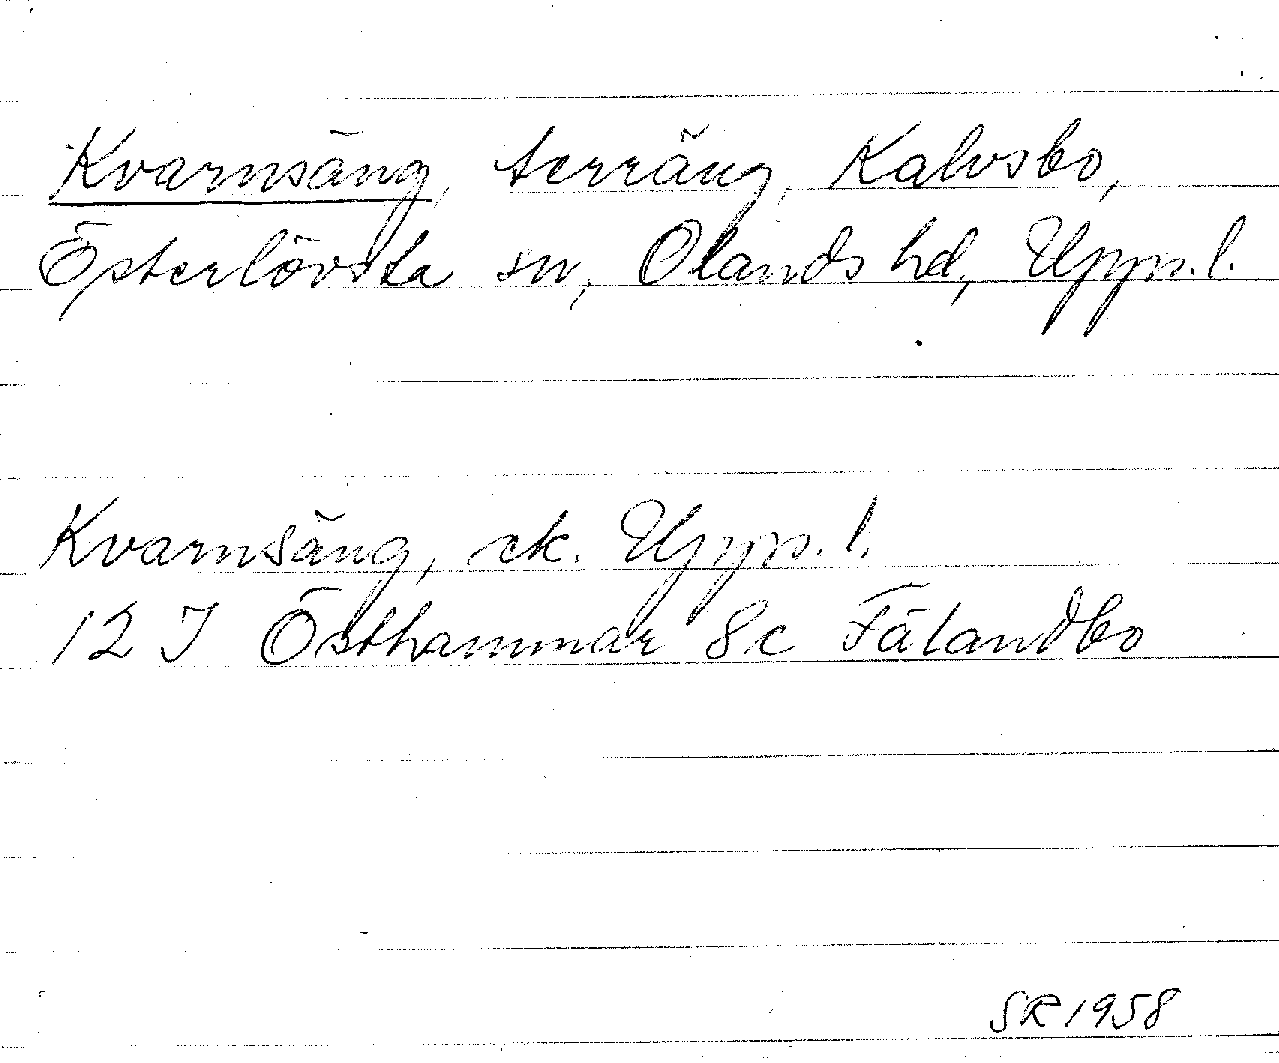 Kvarnsäng, terräng, Kalvsbo,
Österlövsta sn, Olands hd, Upps. l.
Kvarnsäng, ek. Upps. l.
12 I Östhammar 8c Fälandbo
SR 1958